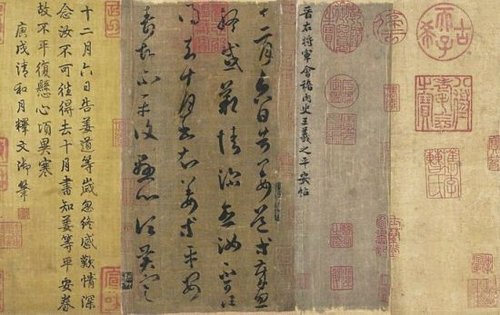 古希天子
八徵耄念之寶
宜子孫
晉右將軍會稽內史王羲之平安帖
十二月六日告姜道等歲忽
終感歎情深念汝不可往
得去十月書知姜等平安
眷故不平復懸心頃異寒
十二月六日告姜道等歲忽終感歎情深
念汝不可往得去十月書知姜等平安眷
故不平復懸心頃異寒
庚戌清和月釋文御筆